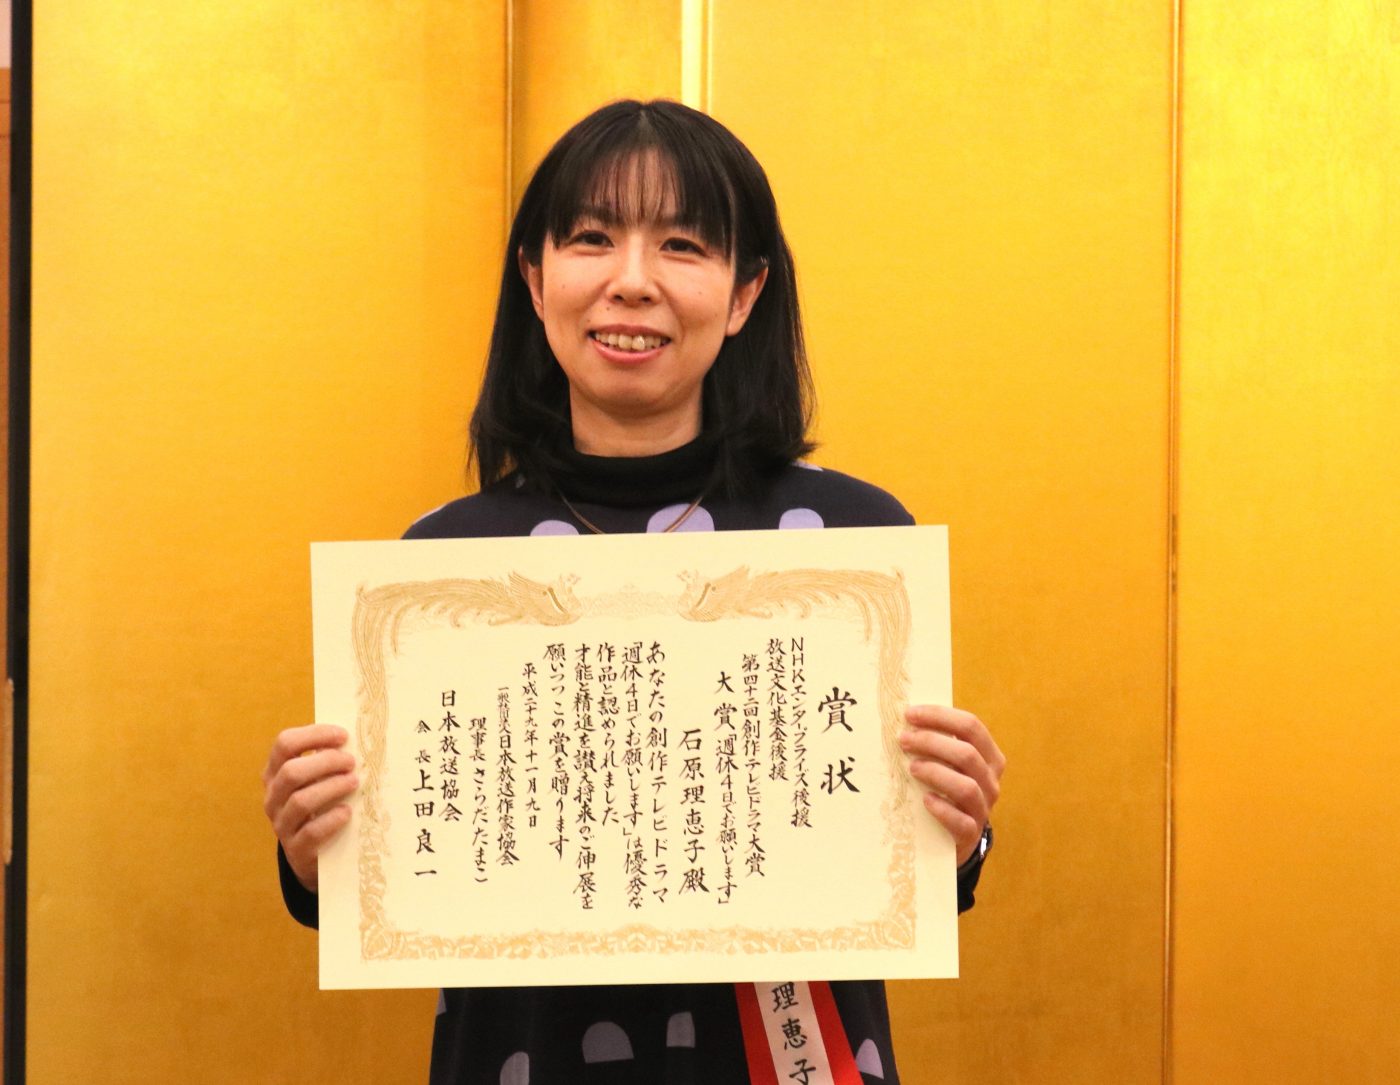 賞状
NHKエンタープライズ後援
放送文化基金後援
第四十二回創作テレビドラマ大賞
大賞「週休4日でお願いします」
石原理恵子殿
あなたの創作テレビドラマ
「週休4日でお願いします」は優秀な
作品と認められました
才能と精進を讃え将来のご伸展を
願いつつこの賞を贈ります
平成二十九年十一月九日
一般社団法人日本放送作家協会
理事長さらだたまこ
日本放送協会
会長上田良一
理恵子